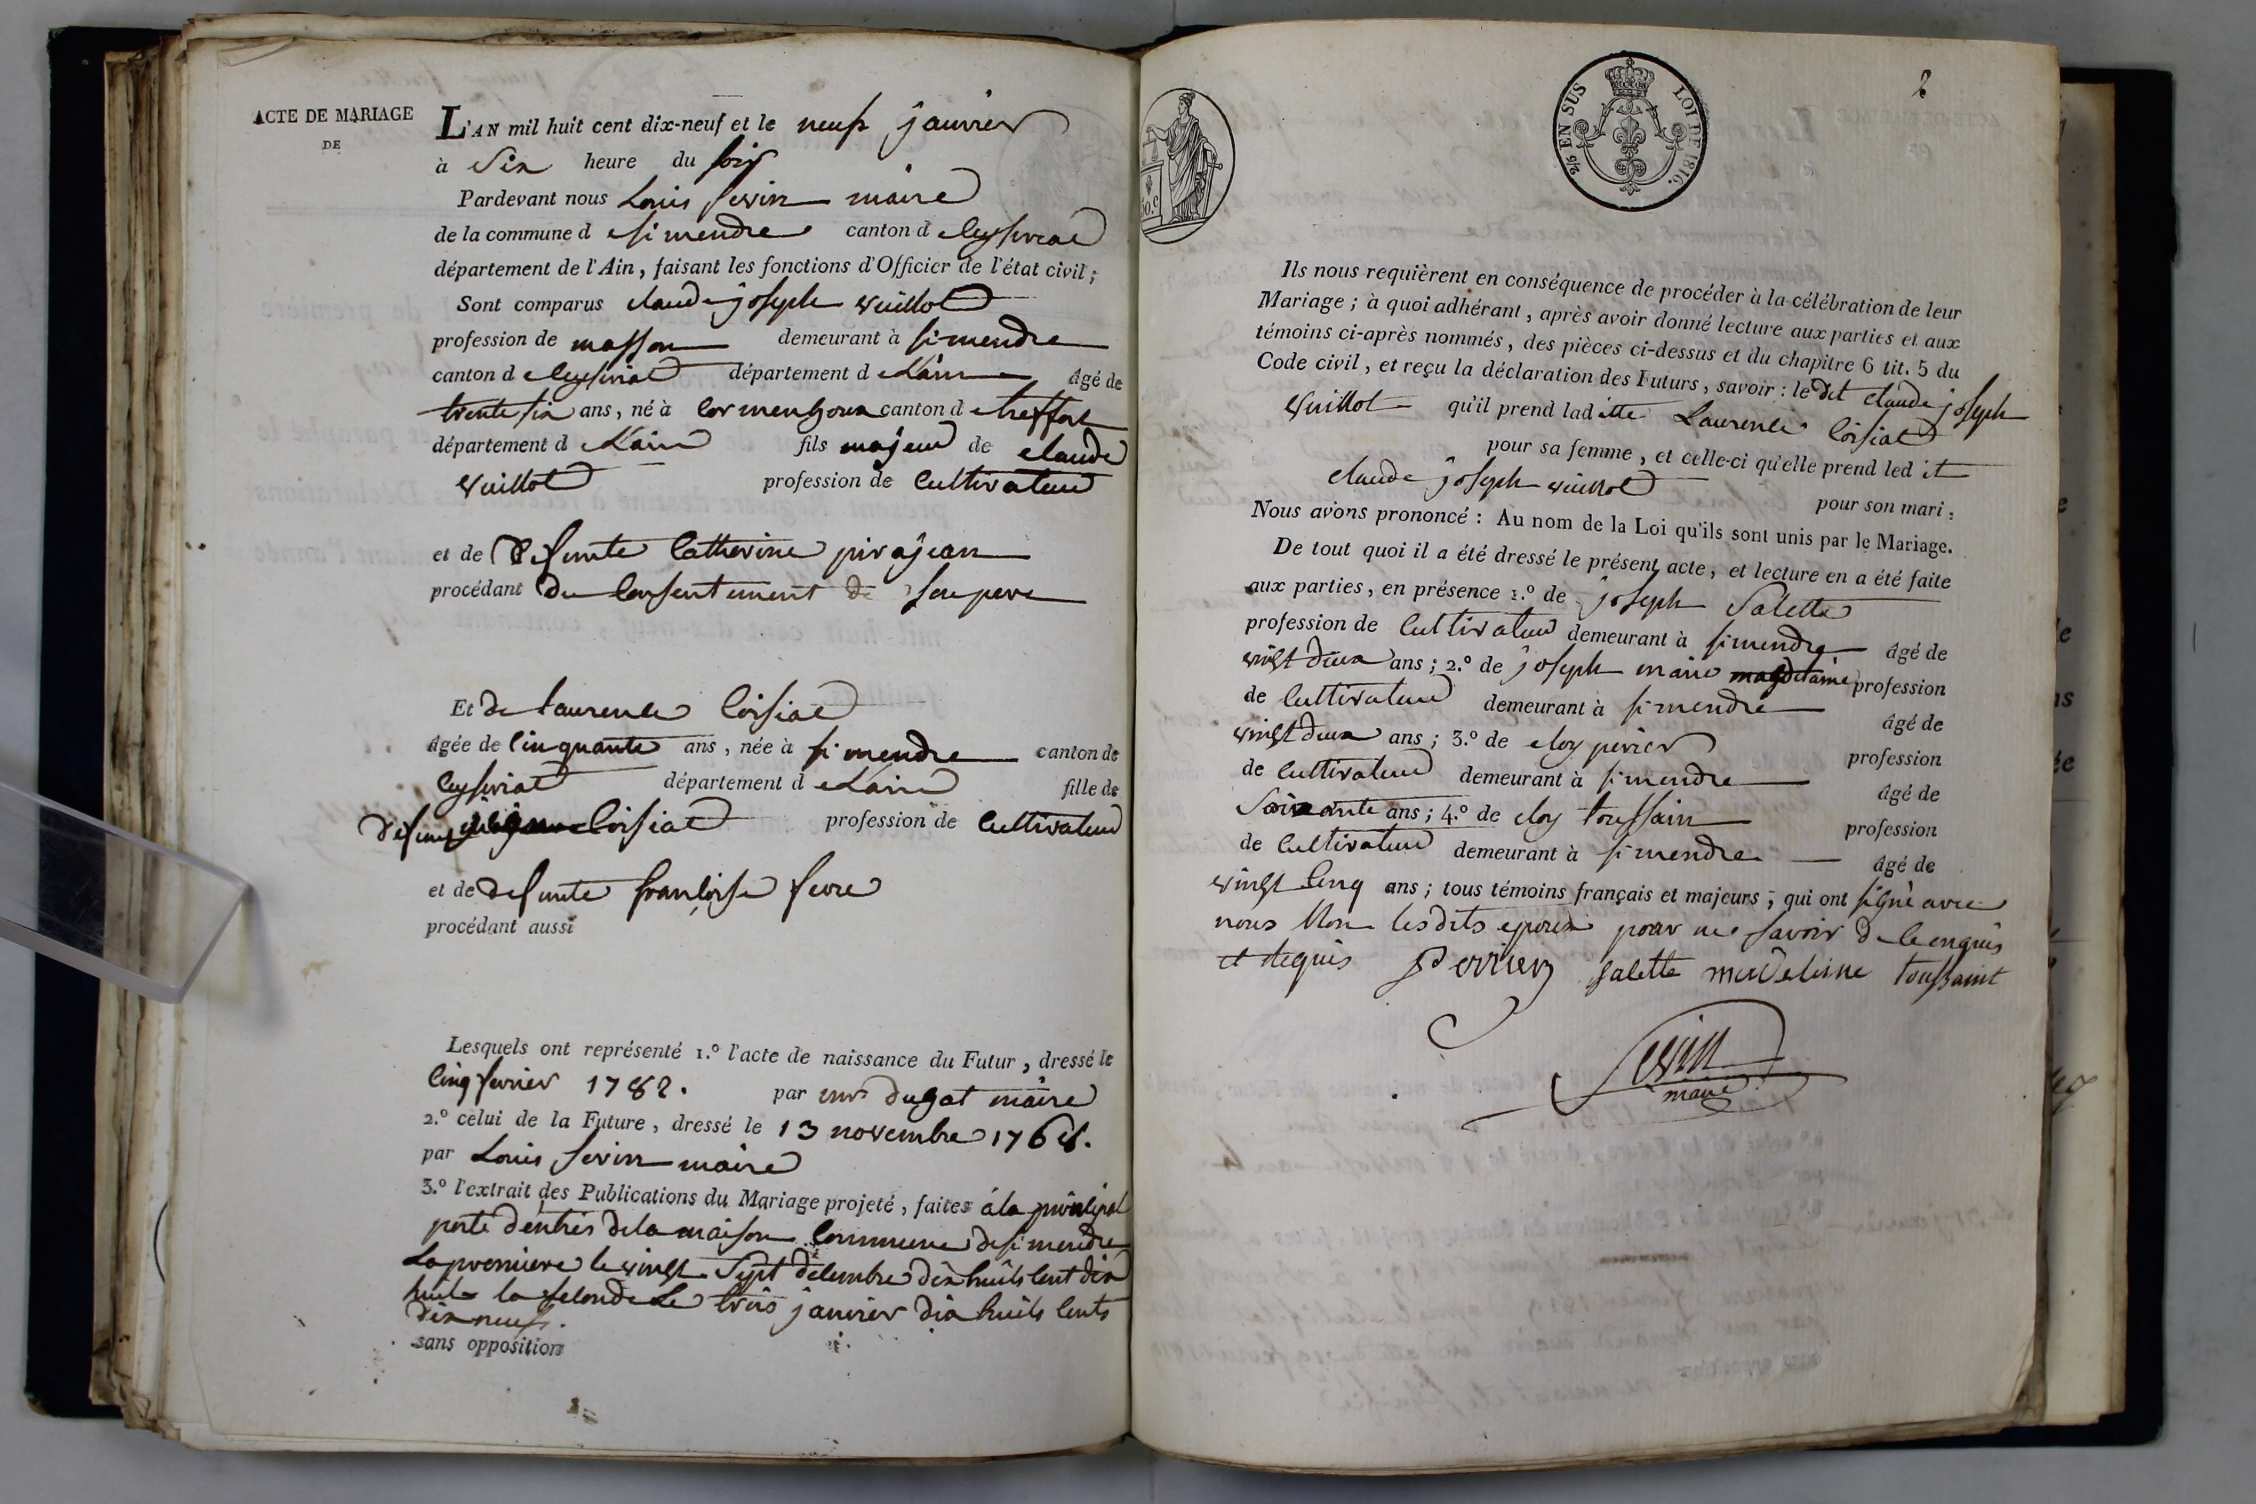 ACTE DE MARIAGE
DE
L'AN mil huit cent dix-neuf et le neuf janvier
à Six heure du soir
Pardevant nous Louis sevin maire
de la commune d esimendre canton d ceyseriat
département de l'Ain, faisant les fonctions d'Officier de l'état civil ;
Sont comparus claude joseph vuillot
profession de masson demeurant à simendre
canton d ceyseriat département d eLain âgé de
trente six ans, né à cormengoux canton d etreffort
département d eLain fils majeur de claude
vuillot profession de cultivateur
et de defunte catherine pirajean
procédant du consentement de son pere
Et de Laurence coisiat
âgée de cinquante ans, née à simendre canton de
ceyseriat département d eLain fille de
defunt coisiat profession de cultivateur
et de defunte françoise fevre
procédant aussi
Lesquels ont représenté 1.º l'acte de naissance du Futur, dressé le
cinq fevrier 1782. par mr dugat maire
2.º celui de la Future, dressé le 13 novembre 1768.
par Louis sevin maire
3.º l'extrait des Publications du Mariage projeté, faites à la principal
porte d'entrés de la maison commune de simendre
La premiere le vingt Sept decembre dix huits cent dix
huit la seconde Le trois janvier dix huits cents
dix neuf.
sans opposition
50.c
2/5 EN SUS LOI DE 1816.
2
Ils nous requièrent en conséquence de procéder à la célébration de leur
Mariage ; à quoi adhérant, après avoir donné lecture aux parties et aux
témoins ci-après nommés, des pièces ci-dessus et du chapitre 6 tit. 5 du
Code civil, et reçu la déclaration des Futurs, savoir : le dit claude joseph
vuillot qu'il prend lad itte Laurence coisiat
pour sa femme, et celle-ci qu'elle prend led it
claude joseph vuillot pour son mari ;
Nous avons prononcé : Au nom de la Loi qu'ils sont unis par le Mariage.
De tout quoi il a été dressé le présent acte, et lecture en a été faite
aux parties, en présence 1.º de joseph Salette
profession de cultivateur demeurant à simendre âgé de
vingt deux ans ; 2.º de joseph marie profession
de cultivateur demeurant à simendre âgé de
vingt deux ans ; 3.º de eloy perier profession
de cultivateur demeurant à simendre âgé de
Soixante ans ; 4.º de eloy toussain profession
de cultivateur demeurant à simendre âgé de
vingt cinq ans ; tous témoins français et majeurs ; qui ont signé avec
nous Non lesdits epoux pour ne savoir de ce enquis
et requis Perrier salette madeleine toussaint
Sevin
maire